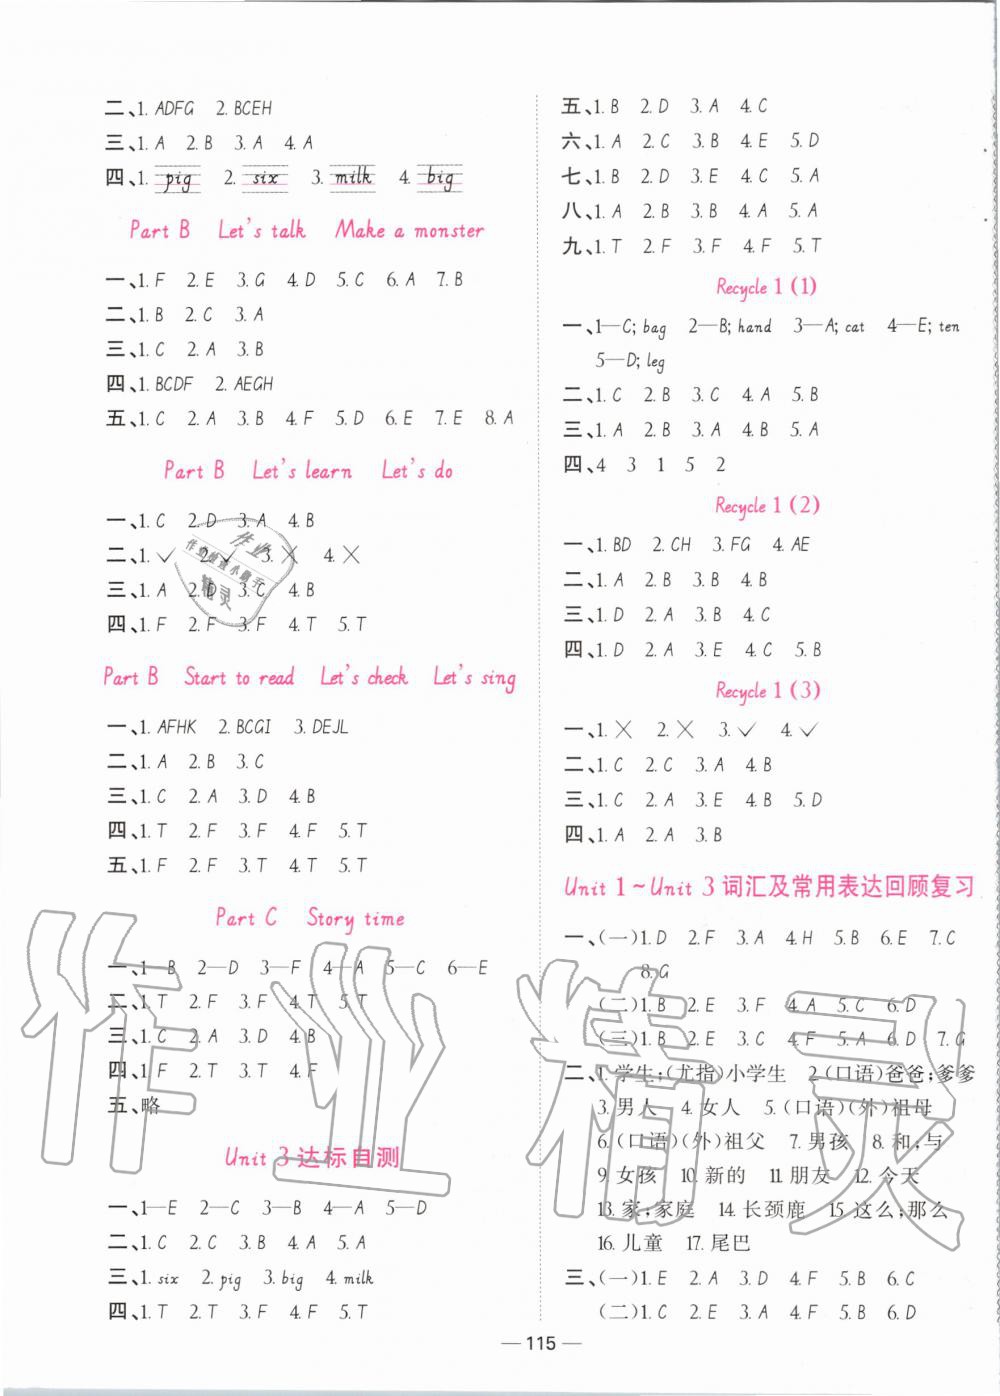 二、1. ADFG 2. BCEH
三、1. A 2. B 3. A 4. A
四、1. pig 2. six 3. milk 4. big
Part B Let's talk Make a monster
一、1. F 2. E 3. G 4. D 5. C 6. A 7. B
二、1. B 2. C 3. A
三、1. C 2. A 3. B
四、1. BCDF 2. AEGH
五、1. C 2. A 3. B 4. F 5. D 6. E 7. E 8. A
Part B Let's learn Let's do
一、1. C 2. D 3. A 4. B
二、1. ✓ 2. ✓ 3. ✗ 4. ✗
三、1. A 2. D 3. C 4. B
四、1. F 2. F 3. F 4. T 5. T
Part B Start to read Let's check Let's sing
一、1. AFHK 2. BCGI 3. DEJL
二、1. A 2. B 3. C
三、1. C 2. A 3. D 4. B
四、1. T 2. F 3. F 4. F 5. T
五、1. F 2. F 3. T 4. T 5. T
Part C Story time
一、1—B 2—D 3—F 4—A 5—C 6—E
二、1. T 2. F 3. F 4. T 5. T
三、1. C 2. A 3. D 4. B
四、1. F 2. T 3. T 4. F
五、略
Unit 3达标自测
一、1—E 2—C 3—B 4—A 5—D
二、1. C 2. C 3. B 4. A 5. A
三、1. six 2. pig 3. big 4. milk
四、1. T 2. T 3. F 4. F 5. T
五、1. B 2. D 3. A 4. C
六、1. A 2. C 3. B 4. E 5. D
七、1. B 2. D 3. E 4. C 5. A
八、1. A 2. B 3. B 4. A 5. A
九、1. T 2. F 3. F 4. F 5. T
Recycle 1 (1)
一、1—C; bag 2—B; hand 3—A; cat 4—E; ten
5—D; leg
二、1. C 2. B 3. C 4. A 5. B
三、1. A 2. B 3. A 4. B 5. A
四、4 3 1 5 2
Recycle 1 (2)
一、1. BD 2. CH 3. FG 4. AE
二、1. A 2. B 3. B 4. B
三、1. D 2. A 3. B 4. C
四、1. D 2. A 3. E 4. C 5. B
Recycle 1 (3)
一、1. ✗ 2. ✗ 3. ✓ 4. ✓
二、1. C 2. C 3. A 4. B
三、1. C 2. A 3. E 4. B 5. D
四、1. A 2. A 3. B
Unit 1～Unit 3词汇及常用表达回顾复习
一、(一)1. D 2. F 3. A 4. H 5. B 6. E 7. C
8. G
(二)1. B 2. E 3. F 4. A 5. C 6. D
(三)1. B 2. E 3. C 4. F 5. A 6. D 7. G
二、1. 学生;(尤指)小学生 2.(口语)爸爸;爹爹
3. 男人 4. 女人 5.(口语)(外)祖母
6.(口语)(外)祖父 7. 男孩 8. 和;与
9. 女孩 10. 新的 11. 朋友 12. 今天
13. 家;家庭 14. 长颈鹿 15. 这么;那么
16. 儿童 17. 尾巴
三、(一)1. E 2. A 3. D 4. F 5. B 6. C
(二)1. C 2. E 3. A 4. F 5. B 6. D
— 115 —
作业精灵
作业
作业检查小帮手
精灵